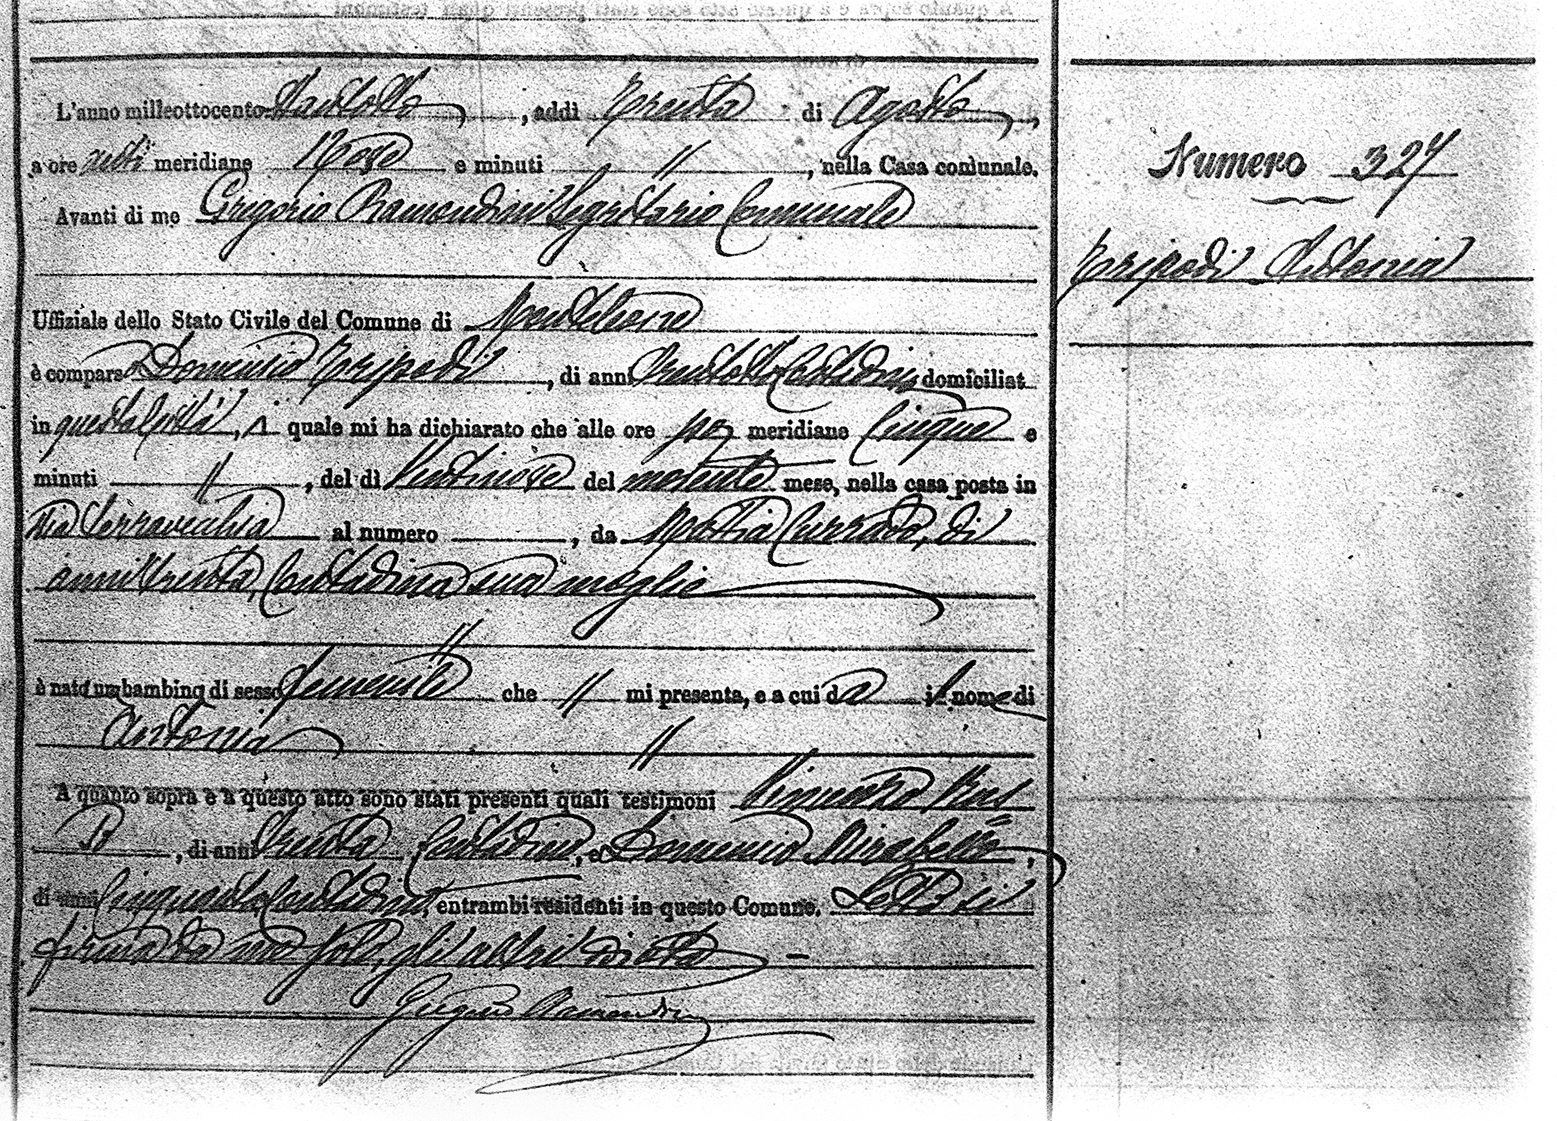 A quanto sopra e a questo atto sono stati presenti quali testimoni
L'anno milleottocento , addì Trenta di Agosto,
a ore anti meridiane e minuti // , nella Casa comunale.
Avanti di me Grigorio Ramondini Segretario Comunale
Uffiziale dello Stato Civile del Comune di Monteleone
è comparso Domenico Tripodi , di anni trentotto Contadino domiciliat
in questa Città, il quale mi ha dichiarato che alle ore poz meridiane Cinque e
minuti // , del dì Ventinove del corrente mese, nella casa posta in
Via Terravecchia al numero , da Maria Currado, di
anni trenta, Contadina sua moglie
//
è nata una bambina di sesso femenile che // mi presenta, e a cui dà il nome di
Antonia //
A quanto sopra e a questo atto sono stati presenti quali testimoni Vincenzo
, di anni trenta Contadino, e Domenico Mirabello,
di anni Cinquanta Contadino, entrambi residenti in questo Comune. Letto si
firma da me solo, gli altri
Gregorio Ramondini
Numero 327
Tripodi Antonia